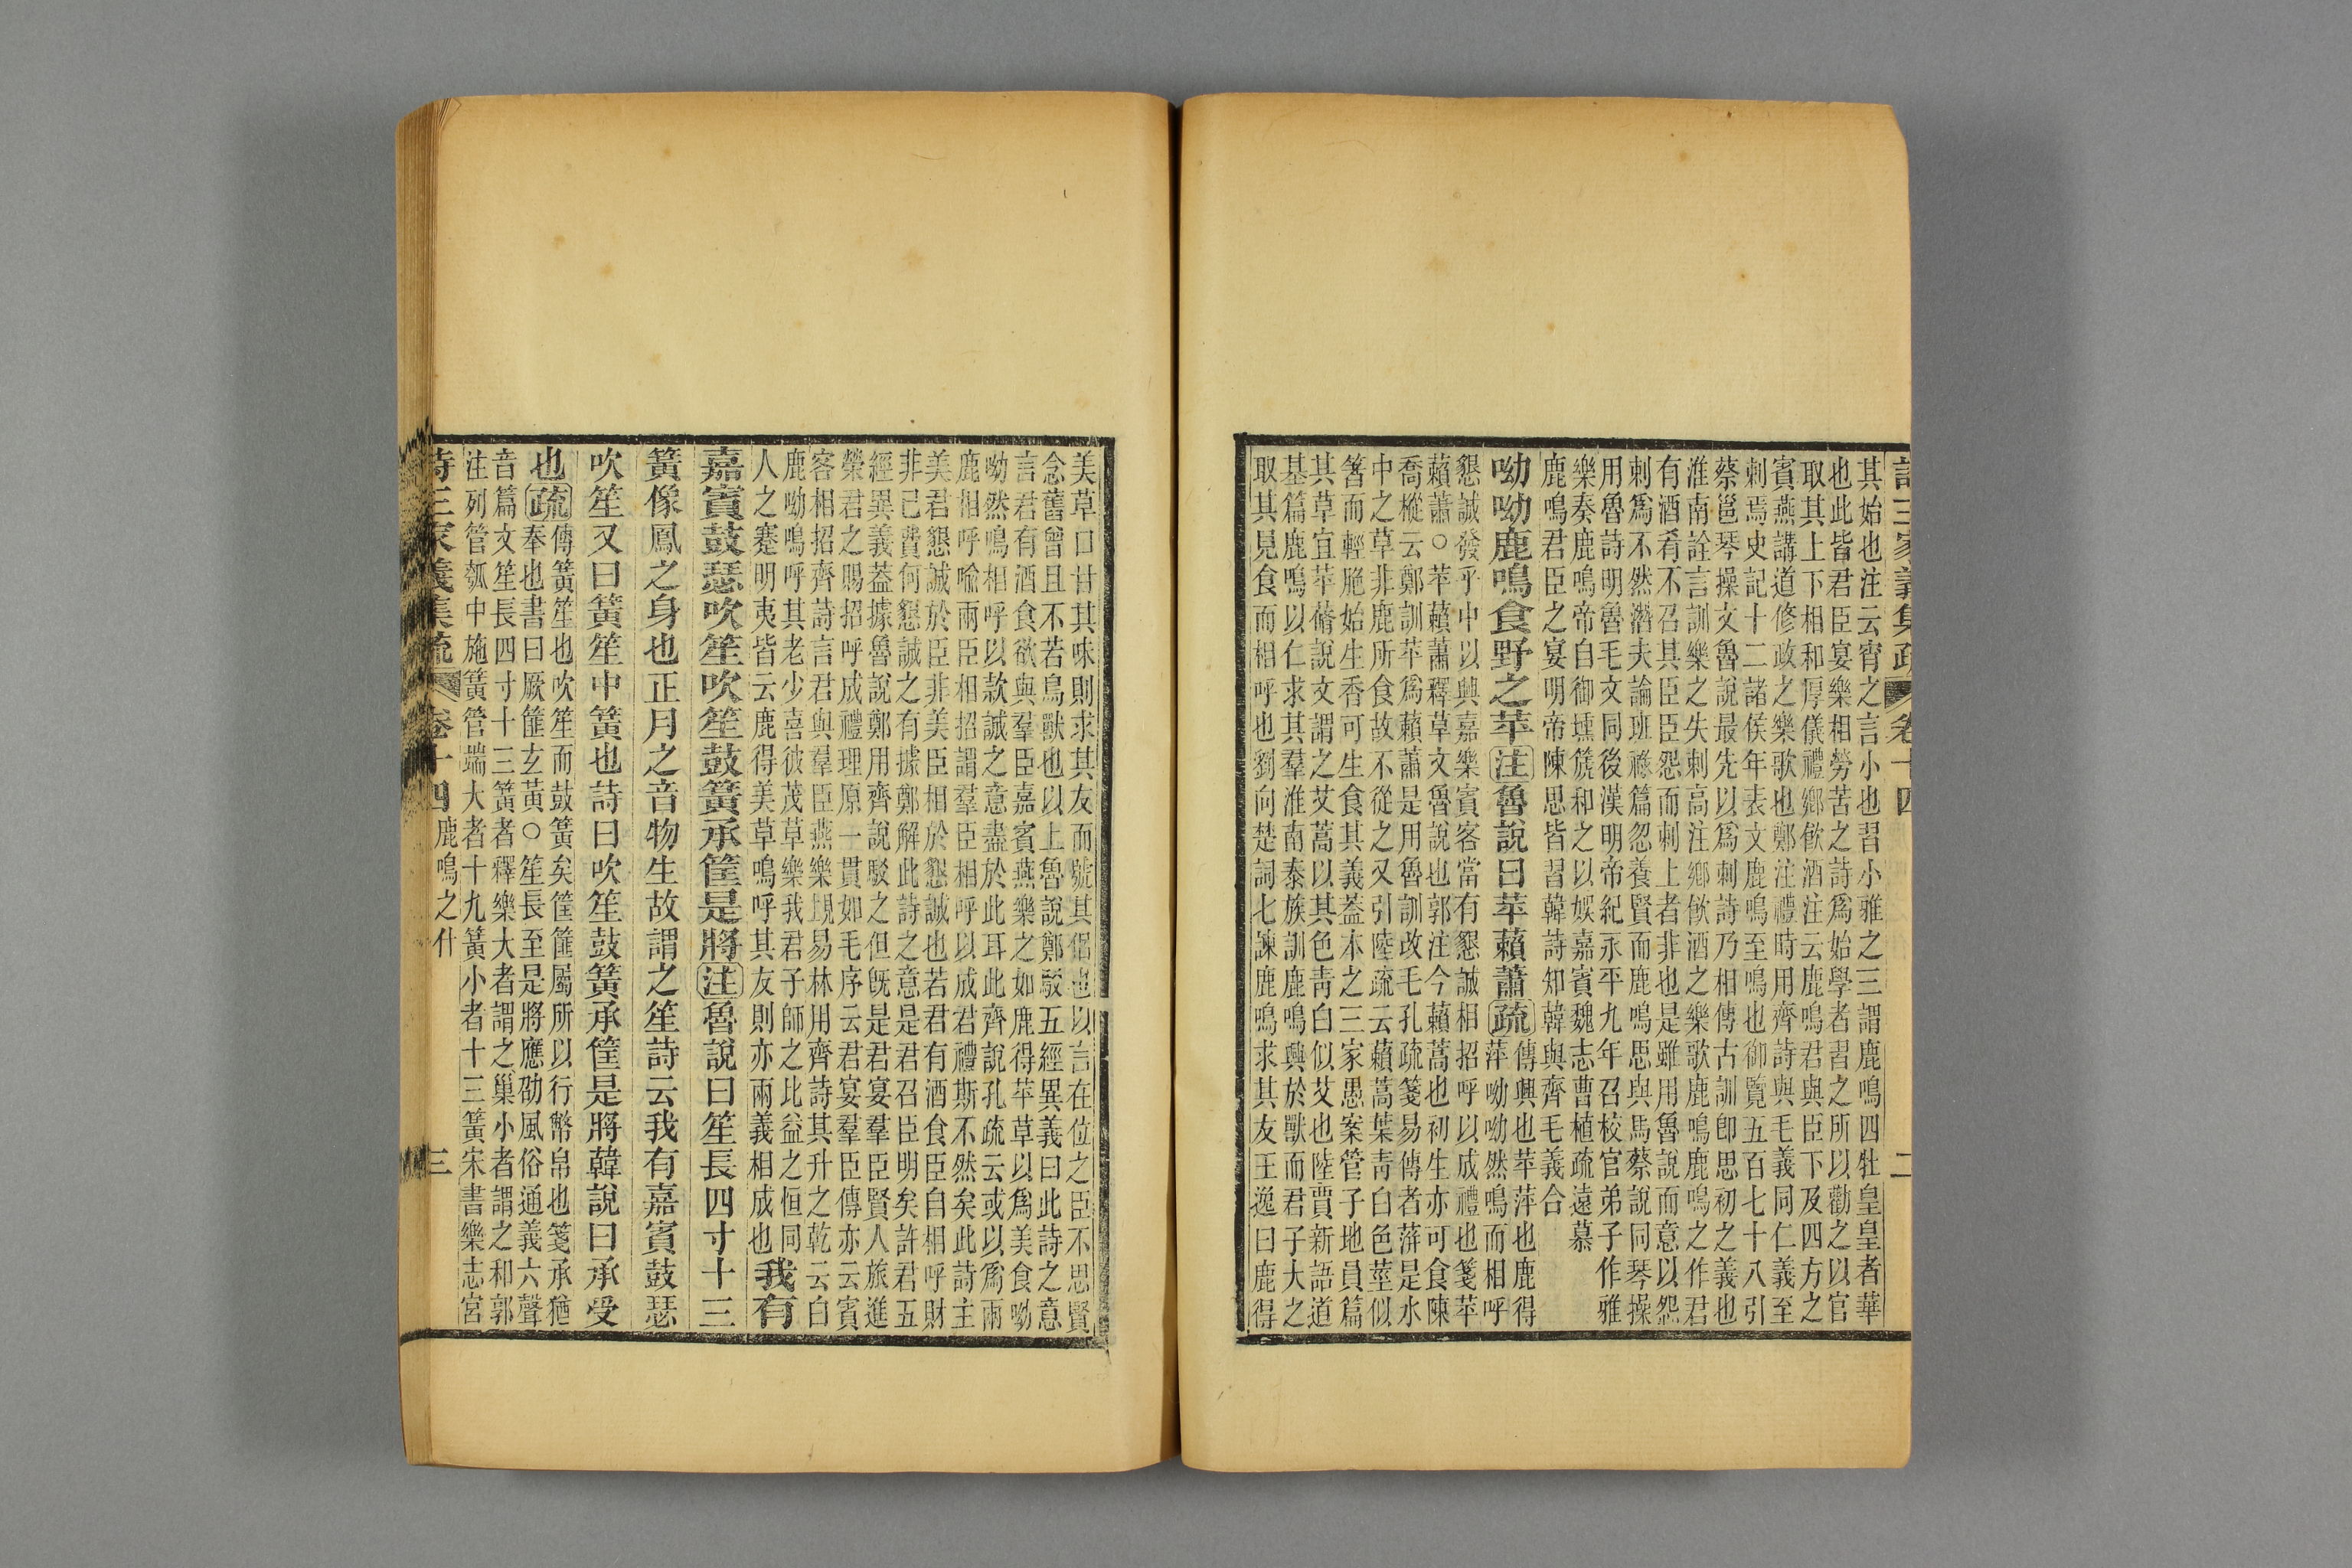 詩三家義集疏 卷十四 二
其始也注云宵之言小也習小雅之三謂鹿鳴四牡皇皇者華
也此皆君臣宴樂相勞苦之詩爲始學者習之所以勸之以官
取其上下相和厚儀禮鄉飲酒注云鹿鳴君與臣下及四方之
賓燕講道修政之樂歌也鄭注禮時用齊詩與毛義同仁義至
刺焉史記十二諸侯年表文鹿鳴至鳴也御覽五百七十八引
蔡邕琴操文魯說最先以爲刺詩乃相傳古訓卽思初之義也
淮南詮言訓樂之失刺高注鄉飲酒之樂歌鹿鳴鹿鳴之作君
有酒肴不召其臣臣怨而刺上者非也是雖用魯說而意以怨
刺爲不然潛夫論班祿篇忽養賢而鹿鳴思與馬蔡說同琴操
用魯詩明魯毛文同後漢明帝紀永平九年召校官弟子作雅
樂奏鹿鳴帝自御壎篪和之以娛嘉賓魏志曹植疏遠慕
鹿鳴君臣之宴明帝陳思皆習韓詩知韓與齊毛義合
呦呦鹿鳴食野之苹注魯說曰苹藾蕭疏傳興也苹萍也鹿得
萍呦呦然鳴而相呼
懇誠發乎中以興嘉樂賓客當有懇誠相招呼以成禮也箋苹
藾蕭○苹藾蕭釋草文魯說也郭注今藾蒿也初生亦可食陳
喬樅云鄭訓苹爲藾蕭是用魯訓改毛孔疏箋易傳者蓱是水
中之草非鹿所食故不從之又引陸疏云藾蒿葉靑白色莖似
箸而輕脆始生香可生食其義蓋本之三家愚案管子地員篇
其草宜苹蓨說文謂之艾蒿以其色靑白似艾也陸賈新語道
基篇鹿鳴以仁求其羣淮南泰族訓鹿鳴興於獸而君子大之
取其見食而相呼也劉向楚詞七諫鹿鳴求其友王逸曰鹿得
美草口甘其味則求其友而號其侶也以言在位之臣不思賢
念舊曾且不若鳥獸也以上魯說鄭駁五經異義曰此詩之意
言君有酒食欲與羣臣嘉賓燕樂之如鹿得苹草以爲美食呦
呦然鳴相呼以款誠之意盡於此耳此齊說孔疏云或以爲兩
鹿相呼喻兩臣相招謂羣臣相呼以成君禮斯不然矣此詩主
美君懇誠於臣非美臣相於懇誠也若君有酒食臣自相呼財
非己費何懇誠之有據鄭解此詩之意是君召臣明矣許君五
經異義蓋據魯說鄭用齊說駁之但旣是君宴羣臣賢人旅進
榮君之賜招呼成禮理原一貫如毛序云君宴羣臣傳亦云賓
客相招齊詩言君與羣臣燕樂䂓易林用齊詩其升之乾云白
鹿呦鳴呼其老少喜彼茂草樂我君子師之比益之恒同
人之蹇明夷皆云鹿得美草鳴呼其友則亦兩義相成也我有
嘉賓鼓瑟吹笙吹笙鼓簧承筐是將注魯說曰笙長四寸十三
簧像鳳之身也正月之音物生故謂之笙詩云我有嘉賓鼓瑟
吹笙又曰簧笙中簧也詩曰吹笙鼓簧承筐是將韓說曰承受
也疏傳簧笙也吹笙而鼓簧矣筐篚屬所以行幣帛也箋承猶
奉也書曰厥篚玄黃○笙長至是將應劭風俗通義六聲
音篇文笙長四寸十三簧者釋樂大者謂之巢小者謂之和郭
注列管瓠中施簧管端大者十九簧小者十三簧宋書樂志宮
詩三家義集疏 卷十四 鹿鳴之什 三